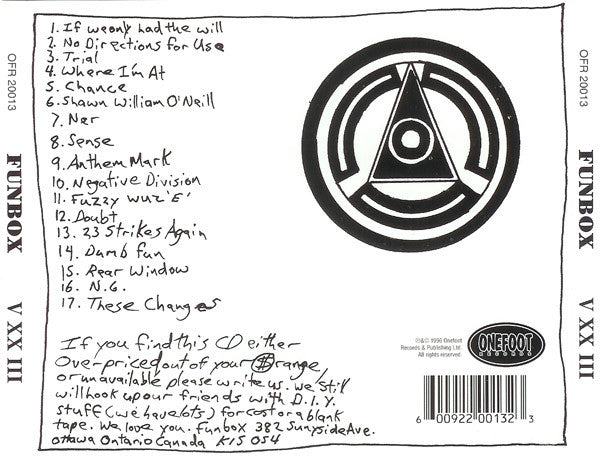 OFR 20013
FUNBOX
V XX III
1. If we only had the will
2. No Directions for Use
3. Trial
4. Where I'm At
5. Chance
6. Shawn William O'Neill
7. Ner
8. Sense
9. Anthem Mark
10. Negative Division
11. Fuzzy wuz 'E'
12. Doubt
13. 23 Strikes Again
14. Dumb fun
15. Rear Window
16. N.G.
17. These Changes
If you find this CD either
Overpriced out of your $range,
or unavailable please write us. we'll still
will hook up our friends with D.I.Y.
stuff (we have lots) for cost or a blank
tape. We love you. Funbox 382 Sunnyside Ave.
Ottawa Ontario Canada K1S 0S4
℗&© 1996 Onefoot
Records & Publishing Ltd.
All rights reserved.
ONEFOOT
RECORDS
6 00922 00132 3
OFR 20013
FUNBOX
V XX III